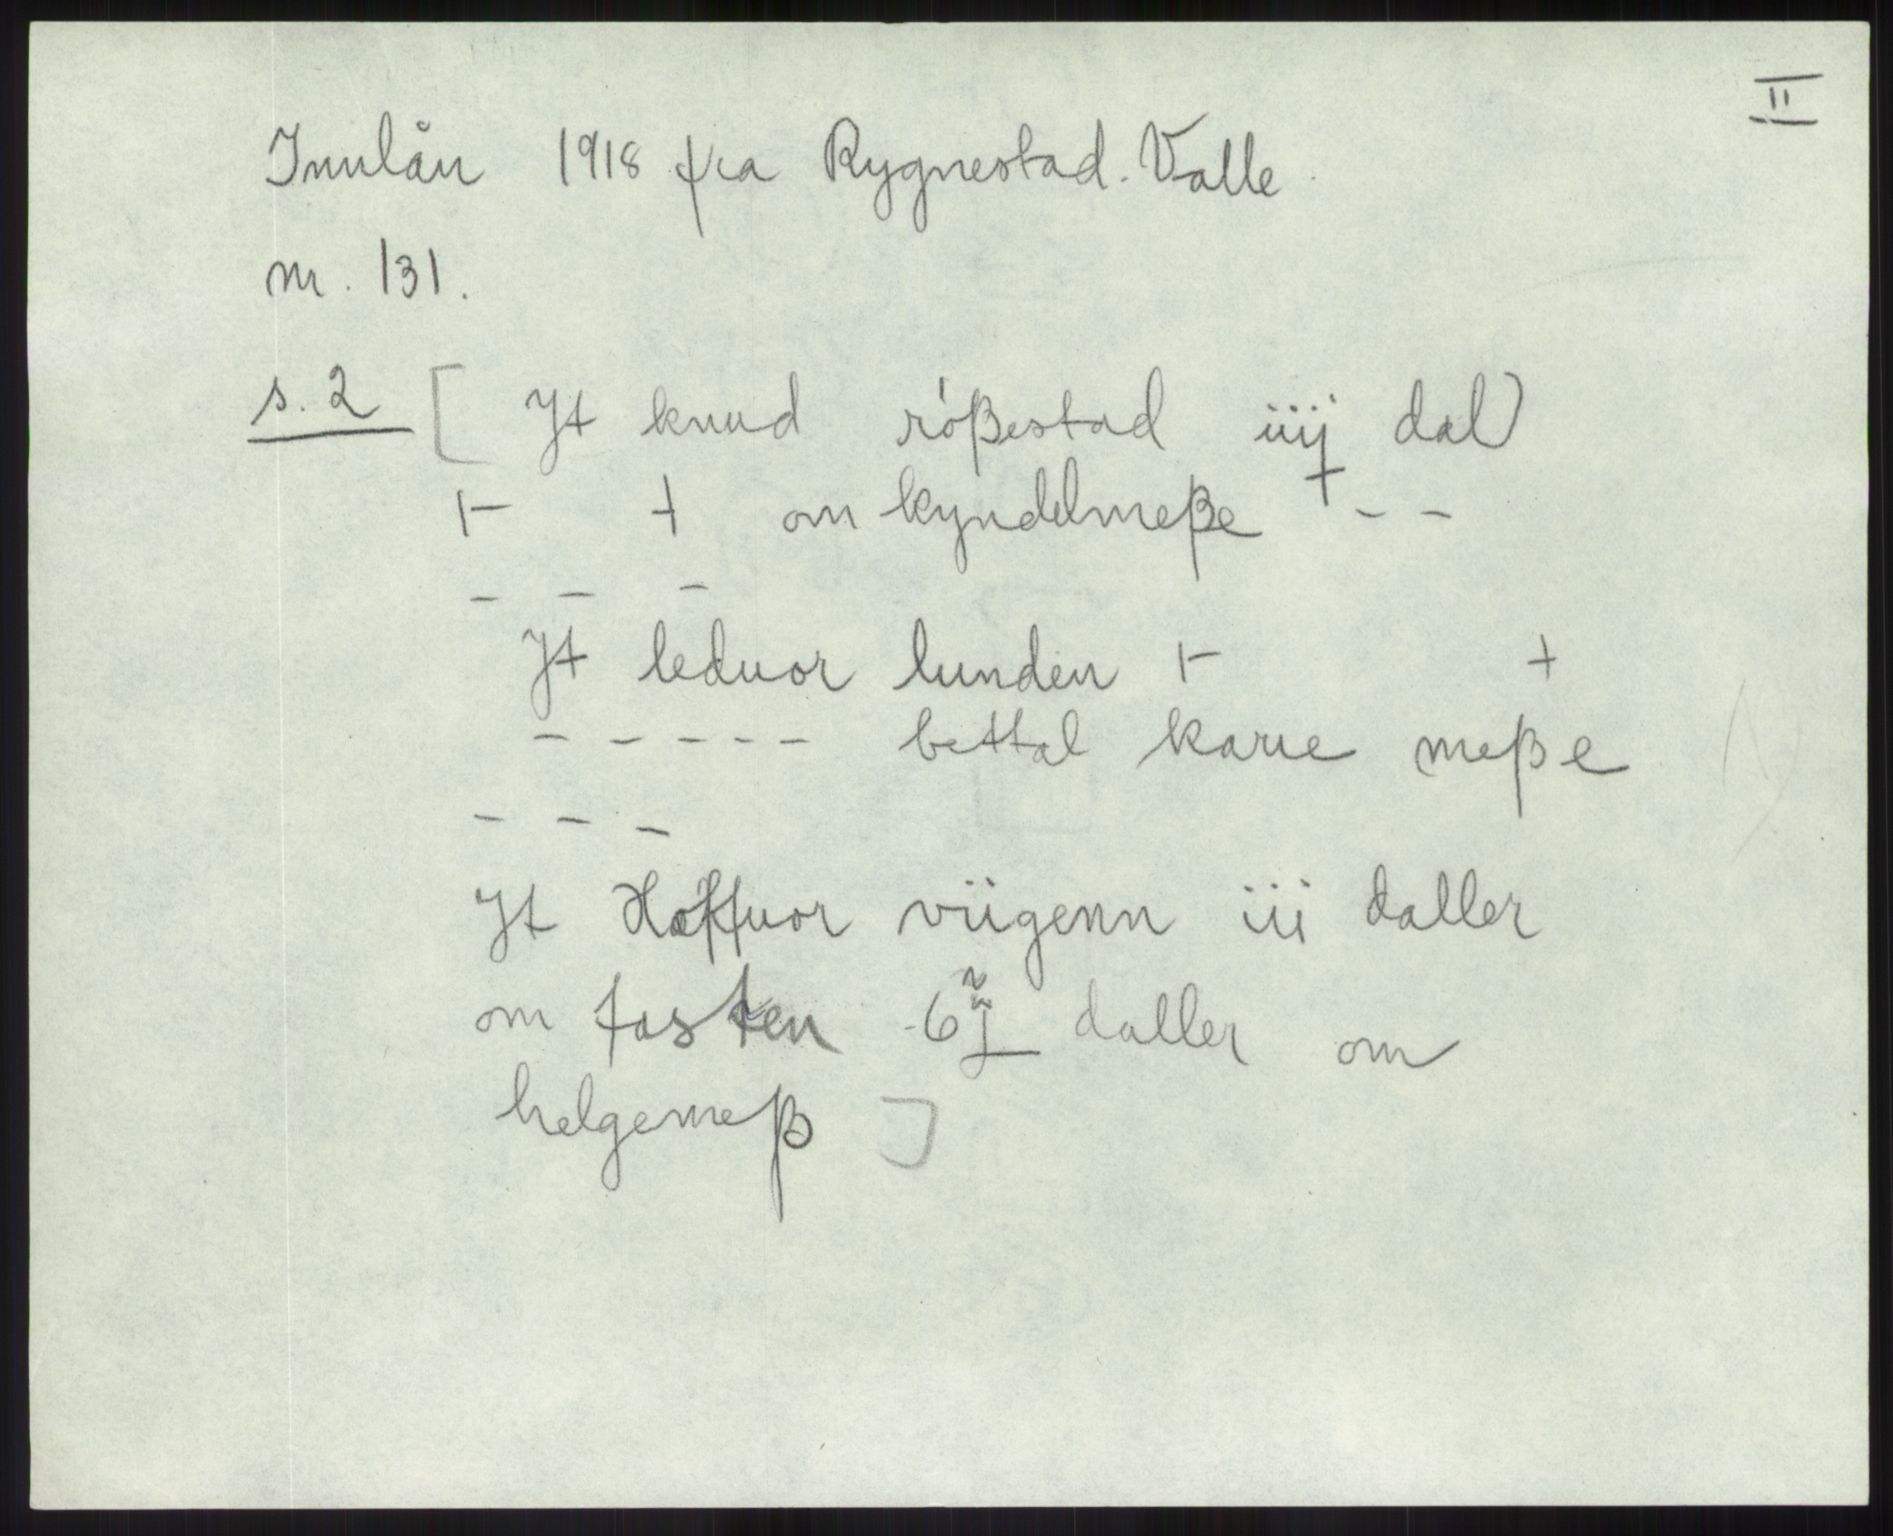 II
Innlån 1918 fra Rygnestad. Valle
nr. 131.
s. 2 [ Jt knud rößestad iiij dal
⊢ + om kyndelmeße + - -
- - -
Jt leduor lunden ⊢ +
- - - - - bettal karue meße
- - -
Jt Hoffuor viigenn iii daller
om fasten daller om
helgemeß ]